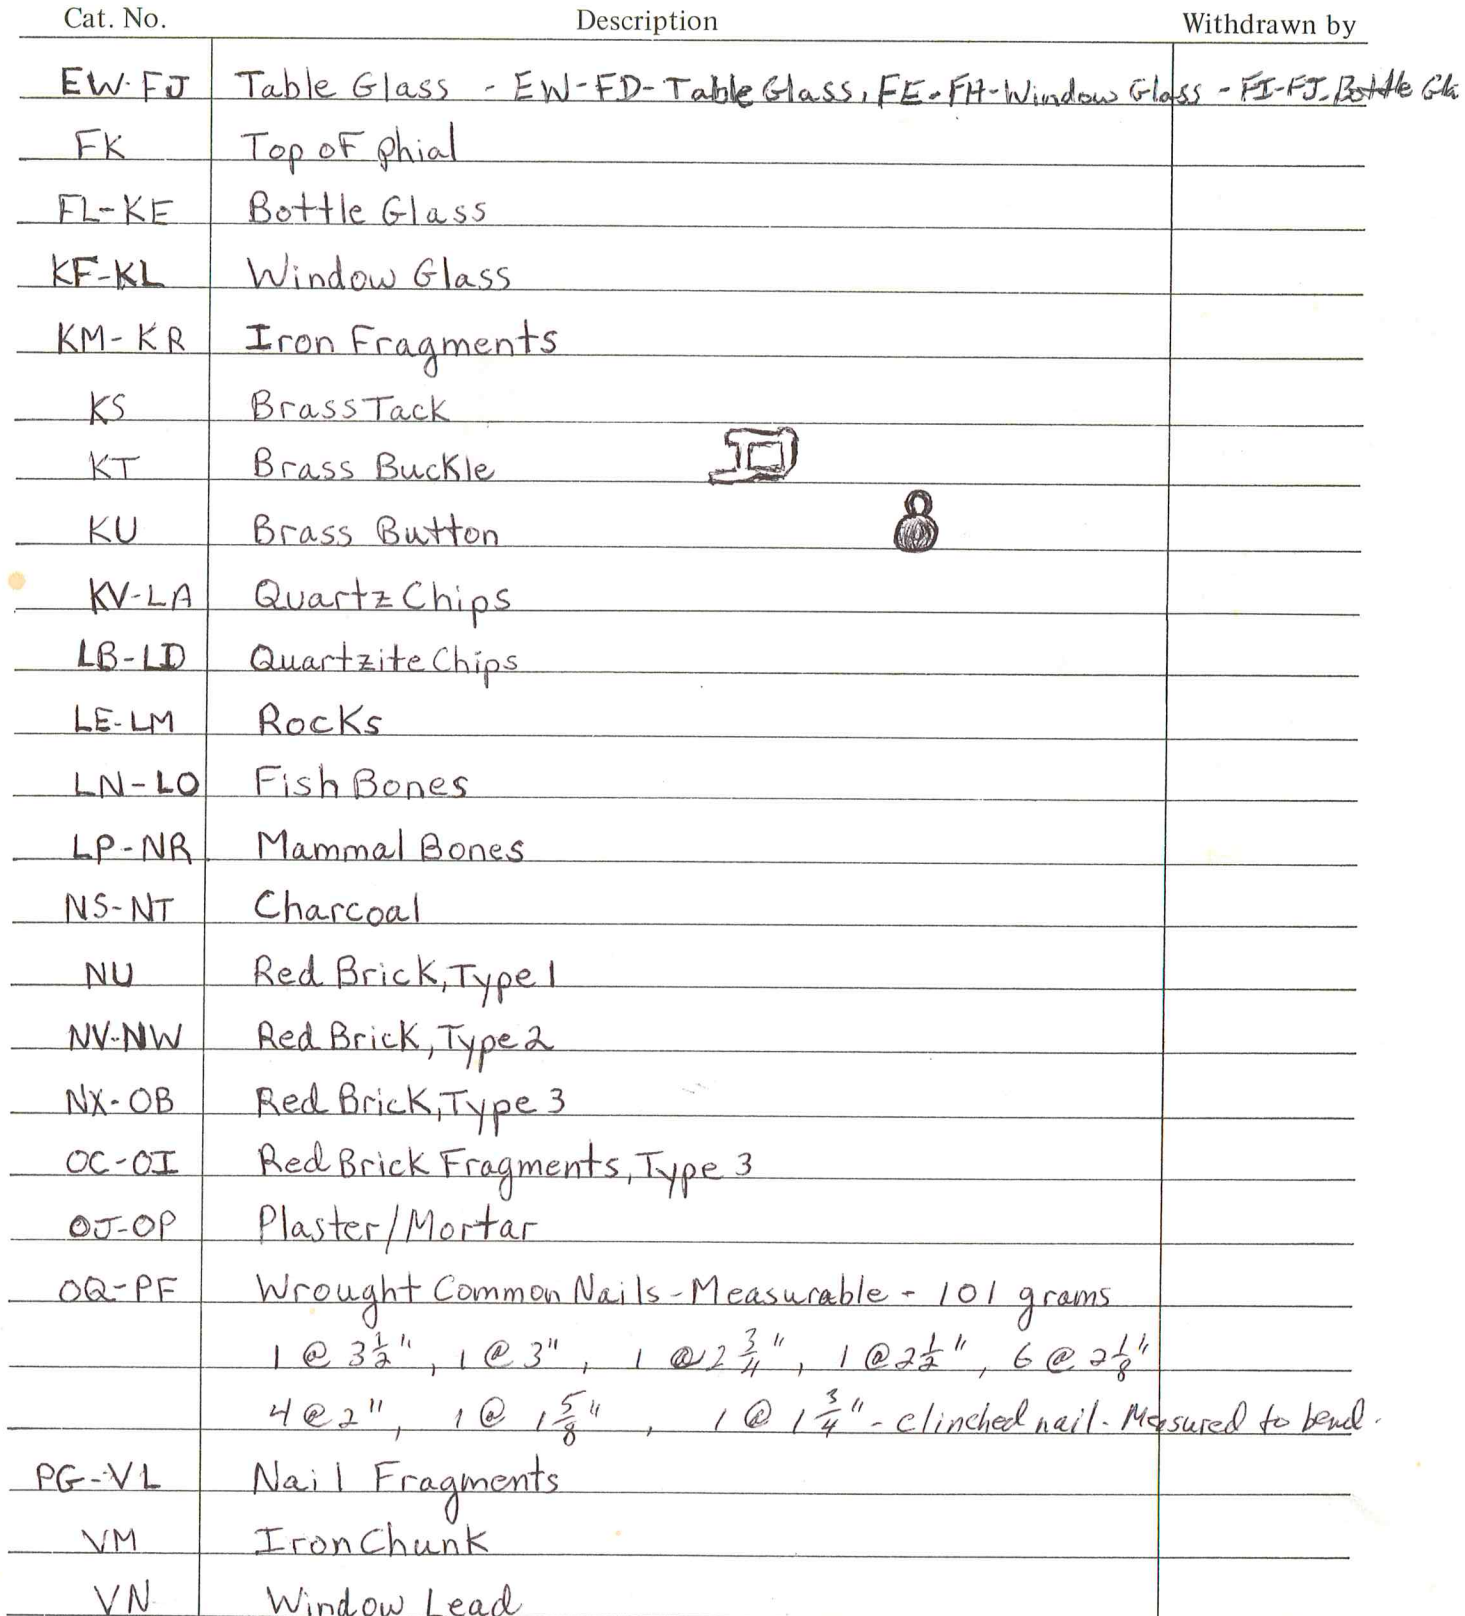 Cat. No. Description Withdrawn by
EW-FJ Table Glass - EW-FD-Table Glass, FE-FH-Window Glass - FI-FJ-Bottle Gla
FK Top of Phial
FL-KE Bottle Glass
KF-KL Window Glass
KM-KR Iron Fragments
KS Brass Tack
KT Brass Buckle
KU Brass Button
KV-LA Quartz Chips
LB-LD Quartzite Chips
LE-LM Rocks
LN-LO Fish Bones
LP-NR Mammal Bones
NS-NT Charcoal
NU Red Brick, Type 1
NV-NW Red Brick, Type 2
NX-OB Red Brick, Type 3
OC-OI Red Brick Fragments, Type 3
OJ-OP Plaster/Mortar
OQ-PF Wrought Common Nails - Measurable - 101 grams
1 @ 3½", 1 @ 3", 1 @ 2 ¾", 1 @ 2½", 6 @ 2⅛"
4 @ 2", 1 @ 1 ⅝", 1 @ 1 ¾" - clinched nail - Measured to bend.
PG-VL Nail Fragments
VM Iron Chunk
VN Window Lead